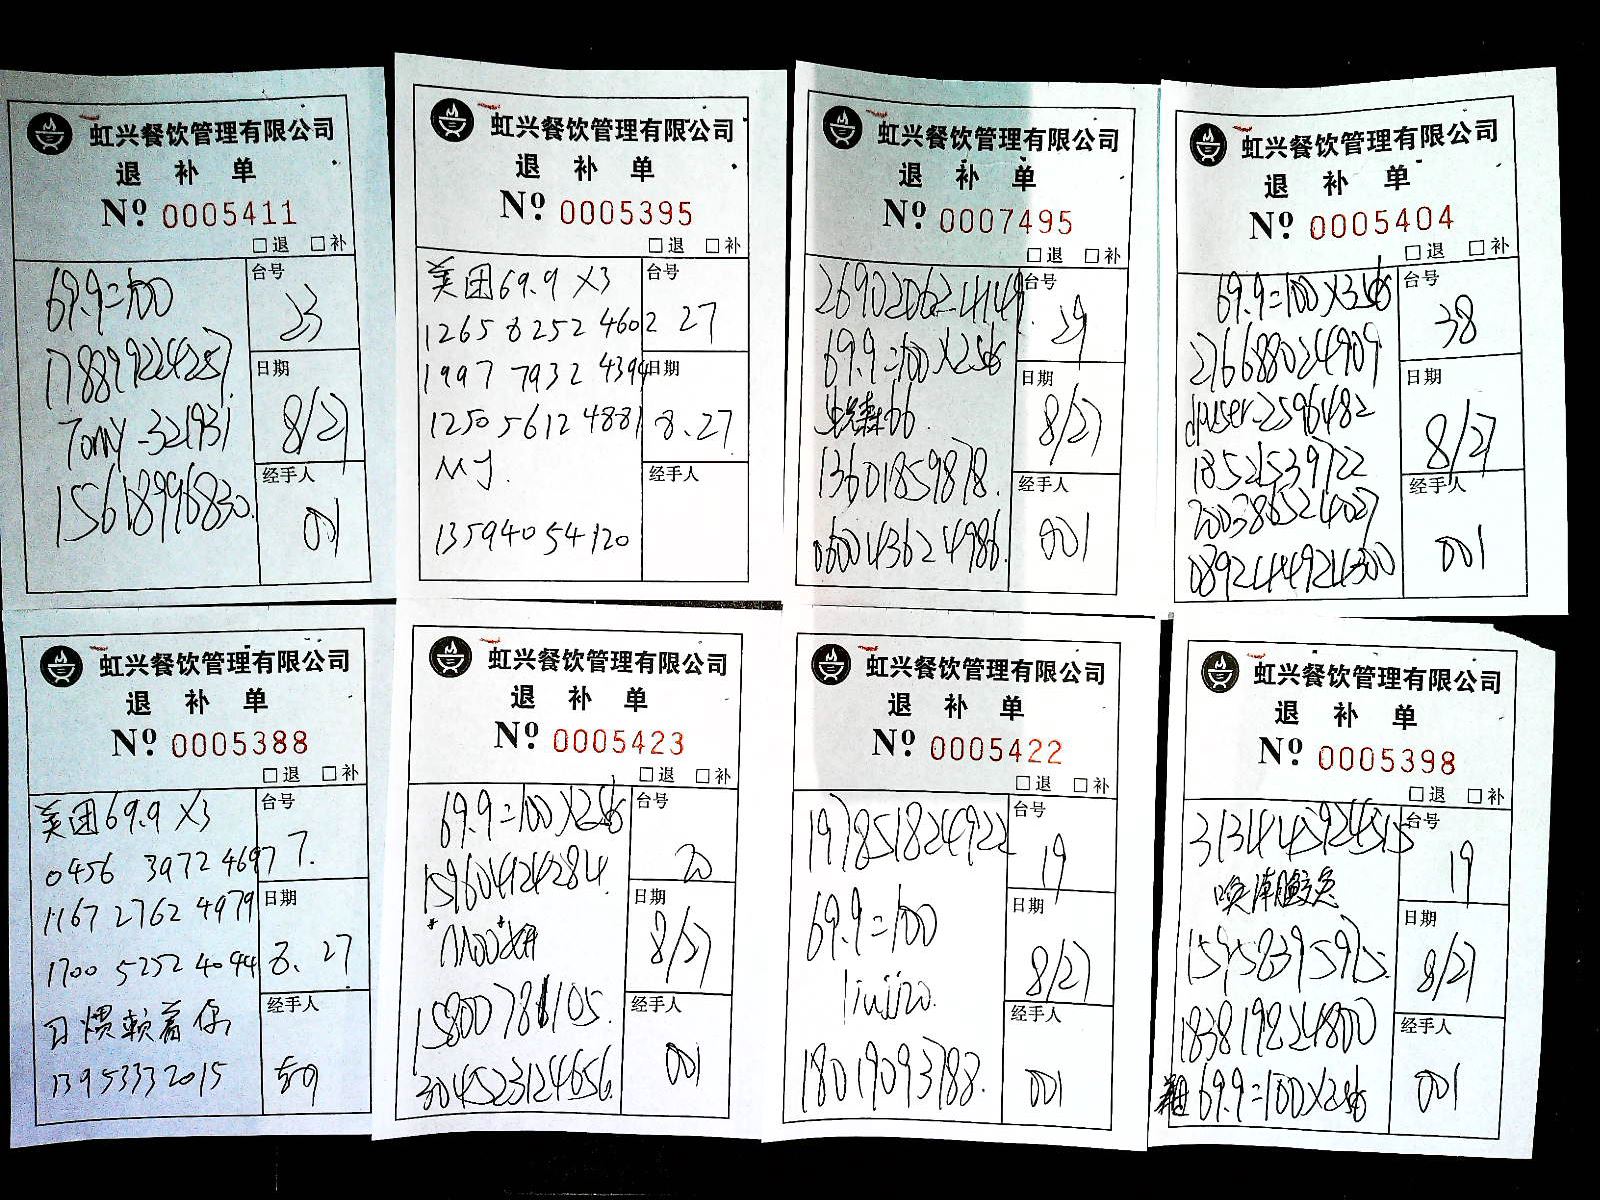 虹兴餐饮管理有限公司
退 补 单
Nº 0005411
□退 □补
69.9=100
178899224257
Tomy-321931
15618996830.
台号
23
日期
8/27
经手人
001
虹兴餐饮管理有限公司
退 补 单
Nº 0005395
□退 □补
美团69.9 X3
1265 8252 4602
1997 7932 4394
1250 5612 4881
MJ.
13594054120
台号
27
日期
8.27
经手人
虹兴餐饮管理有限公司
退 补 单
Nº 0007495
□退 □补
269020624149
69.9=100X2
13601859878.
060043624986.
台号
29
日期
8/27
经手人
001
虹兴餐饮管理有限公司
退 补 单
Nº 0005404
□退 □补
69.9=100X3
276688024909
18521539722
200386524027
089244924300
台号
38
日期
8/27
经手人
001
虹兴餐饮管理有限公司
退 补 单
Nº 0005388
□退 □补
美团69.9 X3
0456 3972 4697
1167 2762 4979
1700 5252 4094
习惯赖着你
13953332015
台号
7.
日期
8.27
经手人
虹兴餐饮管理有限公司
退 补 单
Nº 0005423
□退 □补
69.9=100X2
159604124284
15800781105.
304523124656.
台号
20
日期
8/27
经手人
001
虹兴餐饮管理有限公司
退 补 单
Nº 0005422
□退 □补
197851824922
69.9=100
18019093788.
台号
19
日期
8/27
经手人
001
虹兴餐饮管理有限公司
退 补 单
Nº 0005398
□退 □补
15958395915.
183819824800
69.9=100X2
台号
19
日期
8/27
经手人
001